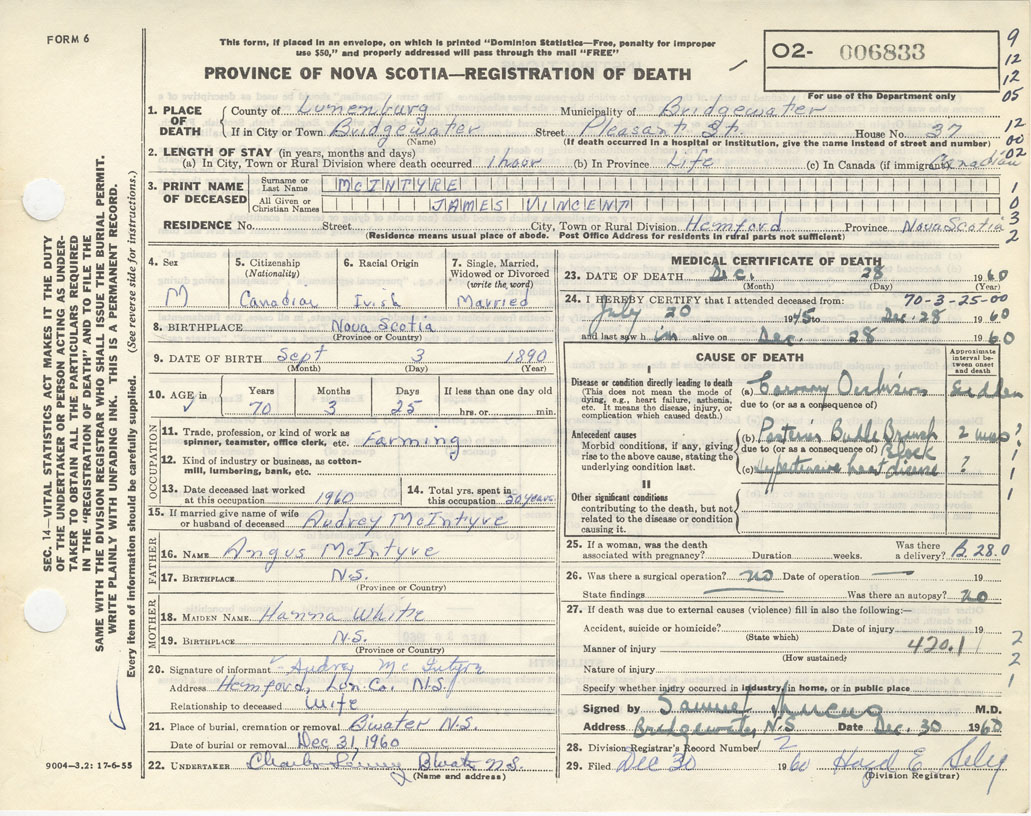 FORM 6
This form, if placed in an envelope, on which is printed "Dominion Statistics—Free, penalty for improper
use $50," and properly addressed will pass through the mail "FREE"
PROVINCE OF NOVA SCOTIA—REGISTRATION OF DEATH
02- 006833
For use of the Department only
9
12
12
05
12
00
02
1
0
3
2
1. PLACE OF DEATH
County of Lunenburg Municipality of Bridgewater
If in City or Town Bridgewater Street Pleasant St. House No. 37
(Name) (If death occurred in a hospital or institution, give the name instead of street and number)
2. LENGTH OF STAY (in years, months and days)
(a) In City, Town or Rural Division where death occurred 1 hour (b) In Province Life (c) In Canada (if immigrant) Canadian
3. PRINT NAME OF DECEASED
Surname or Last Name McINTYRE
All Given or Christian Names JAMES VINCENT
RESIDENCE No. Street City, Town or Rural Division Hemford Province Nova Scotia
(Residence means usual place of abode. Post Office Address for residents in rural parts not sufficient)
SEC. 14—VITAL STATISTICS ACT MAKES IT THE DUTY
OF THE UNDERTAKER OR PERSON ACTING AS UNDER-
TAKER TO OBTAIN ALL THE PARTICULARS REQUIRED
IN THE "REGISTRATION OF DEATH" AND TO FILE THE
SAME WITH THE DIVISION REGISTRAR WHO SHALL ISSUE THE BURIAL PERMIT.
WRITE PLAINLY WITH UNFADING INK. THIS IS A PERMANENT RECORD.
Every item of information should be carefully supplied. (See reverse side for instructions.)
4. Sex M
5. Citizenship (Nationality) Canadian
6. Racial Origin Irish
7. Single, Married, Widowed or Divorced (write the word) Married
8. BIRTHPLACE Nova Scotia
(Province or Country)
9. DATE OF BIRTH Sept 3 1890
(Month) (Day) (Year)
10. AGE in Years 70 Months 3 Days 25 If less than one day old hrs. or min.
OCCUPATION
11. Trade, profession, or kind of work as
spinner, teamster, office clerk, etc. Farming
12. Kind of industry or business, as cotton-
mill, lumbering, bank, etc.
13. Date deceased last worked
at this occupation 1960
14. Total yrs. spent in
this occupation 50 years
15. If married give name of wife
or husband of deceased Audrey McIntyre
FATHER
16. NAME Angus McIntyre
17. BIRTHPLACE N.S.
(Province or Country)
MOTHER
18. MAIDEN NAME Hanna White
19. BIRTHPLACE N.S.
(Province or Country)
20. Signature of informant Audrey McIntyre
Address Hemford, Lun. Co. N.S.
Relationship to deceased Wife
21. Place of burial, cremation or removal Bwater N.S.
Date of burial or removal Dec 31, 1960
22. UNDERTAKER Bwater N.S.
(Name and address)
9004—3.2: 17-6-55
MEDICAL CERTIFICATE OF DEATH
23. DATE OF DEATH Dec. 28 1960
(Month) (Day) (Year)
24. I HEREBY CERTIFY that I attended deceased from: 70-3-25-00
July 20 1945 to Dec. 28 1960
and last saw him alive on Dec. 28 1960
CAUSE OF DEATH
Approximate interval between onset and death
I
Disease or condition directly leading to death
(This does not mean the mode of dying, e.g., heart failure, asthenia, etc. It means the disease, injury, or complication which caused death.)
(a) Coronary Occlusion Sudden
due to (or as a consequence of)
Antecedent causes
Morbid conditions, if any, giving rise to the above cause, stating the underlying condition last.
(b) Posterior Bundle Branch Block
due to (or as a consequence of)
(c) Hypertensive heart disease ?
II
Other significant conditions
contributing to the death, but not related to the disease or condition causing it.
25. If a woman, was the death
associated with pregnancy? Duration weeks. Was there a delivery? B. 28.0
26. Was there a surgical operation? no Date of operation 19
State findings Was there an autopsy? no
27. If death was due to external causes (violence) fill in also the following:—
Accident, suicide or homicide? Date of injury 19
(State which)
Manner of injury 420.1
(How sustained)
Nature of injury
Specify whether injury occurred in industry, in home, or in public place
2
2
1
Signed by Samuel Marcus M.D.
Address Bridgewater, N.S. Date Dec. 30 1960
28. Division Registrar's Record Number 2
29. Filed Dec 30 1960
(Division Registrar)